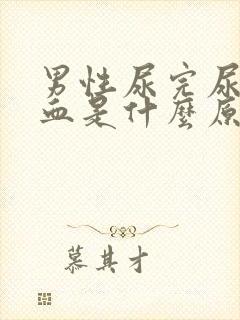 男性尿完尿
血是什麼原
慕其才